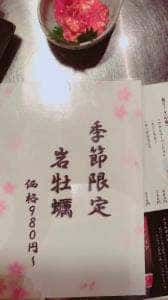 季節限定
岩牡蠣
価格980円~